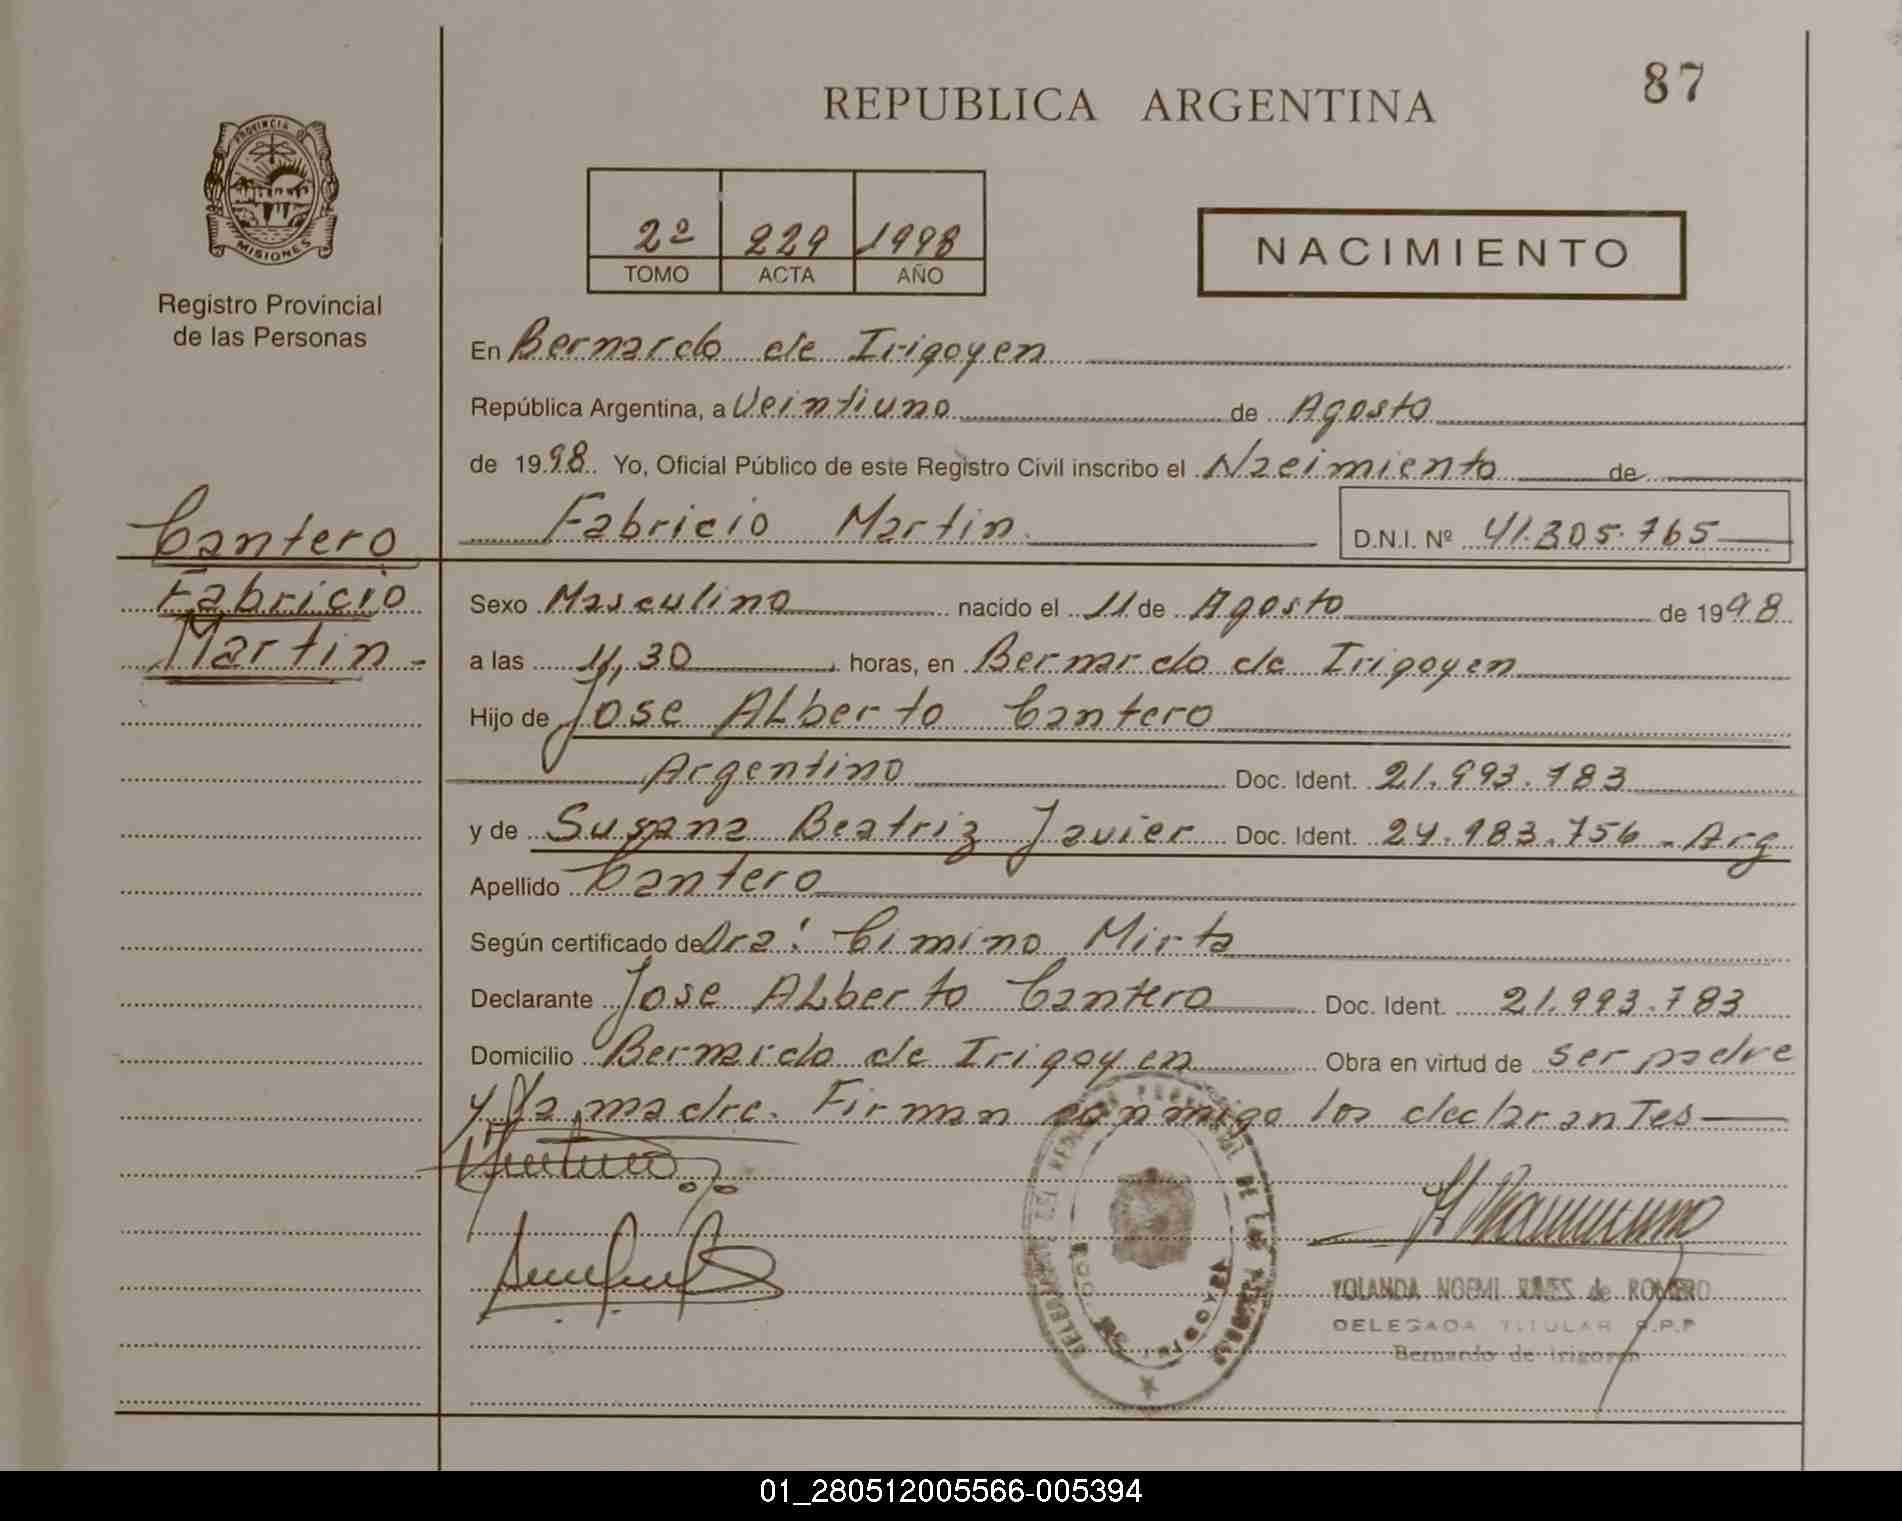 87
REPUBLICA ARGENTINA
PROVINCIA D
MISIONES
Registro Provincial
de las Personas
2º 229 1998
TOMO ACTA AÑO
NACIMIENTO
En Bernardo de Irigoyen
República Argentina, a Veintiuno de Agosto
de 1998. Yo, Oficial Público de este Registro Civil inscribo el Nacimiento de
Fabricio Martin D.N.I. Nº 41.305.765
Cantero
Fabricio
Martin
Sexo Masculino nacido el 11 de Agosto de 1998
a las 11,30 horas, en Bernardo de Irigoyen
Hijo de Jose ALberto Cantero
Argentino Doc. Ident. 21.993.783
y de Susana Beatriz Javier Doc. Ident. 24.983.756 - Arg
Apellido Cantero
Según certificado de Dra: Cimino Mirta
Declarante Jose ALberto Cantero Doc. Ident. 21.993.783
Domicilio Bernardo de Irigoyen Obra en virtud de ser padre
y la madre. Firman conmigo los declarantes
YOLANDA NOEMI de ROMERO
DELEGADA TITULAR R.P.P
Bernardo de Irigoyen
01_280512005566-005394